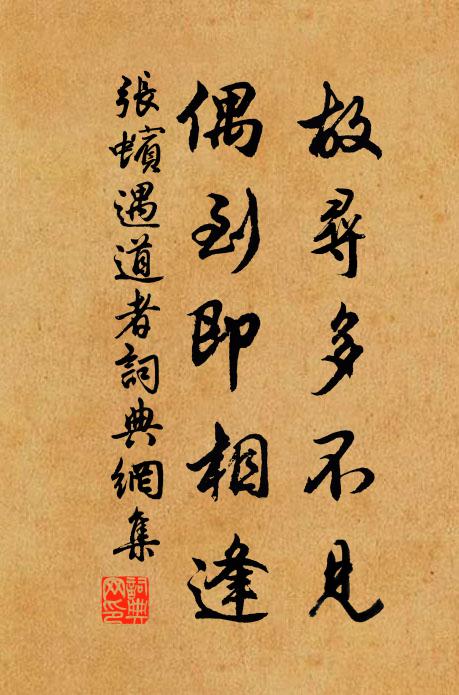 故尋多不見
偶到即相逢
張蠙遇道者詞典網集
詞典網印